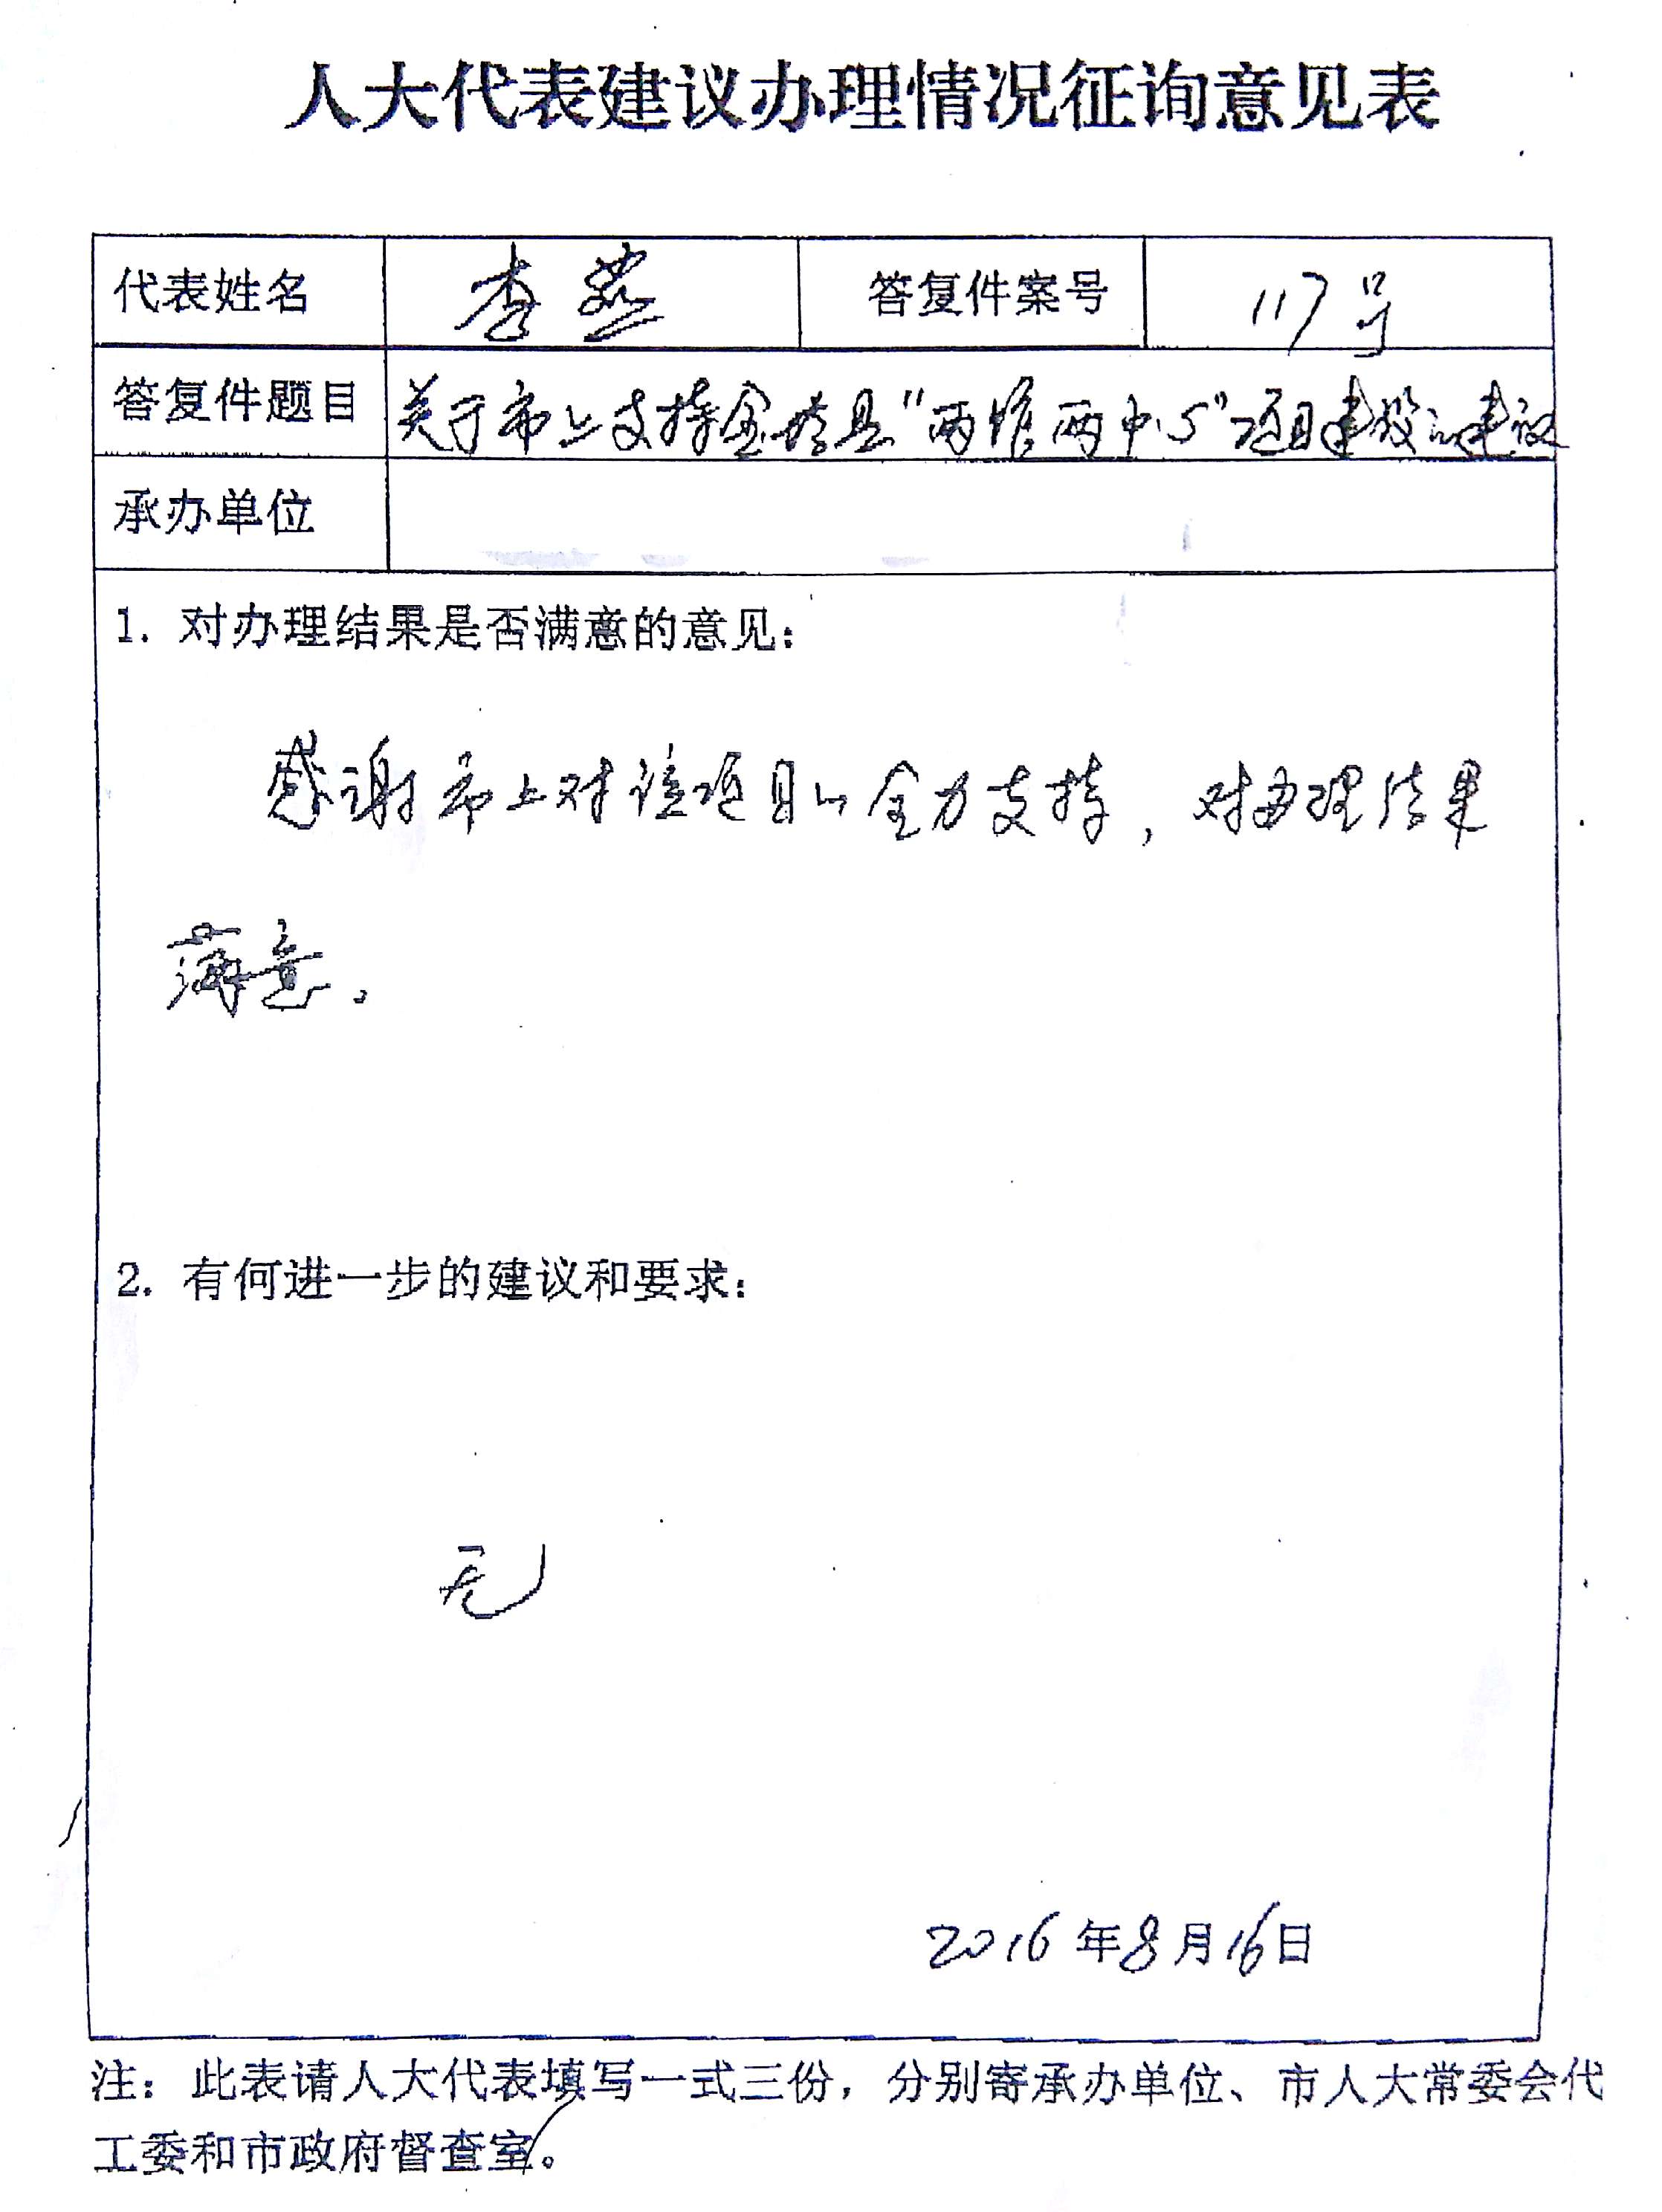 人大代表建议办理情况征询意见表
代表姓名 李燕 答复件案号 117号
答复件题目 关于市上支持金堂县“两馆两中心”项目建设的建议
承办单位
1. 对办理结果是否满意的意见：
感谢市上对该项目的全力支持，对办理结果
满意。
2. 有何进一步的建议和要求：
无
2016年8月16日
注：此表请人大代表填写一式三份，分别寄承办单位、市人大常委会代
工委和市政府督查室。